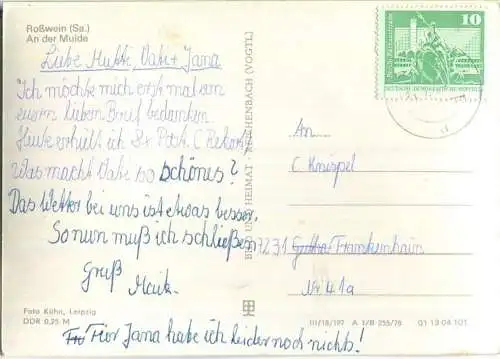 Roßwein (Sa.)
An der Mulde
Liebe Mutti, Vati + Jana
Ich möchte mich erst mal von
euern lieben Brief bedanken
Heute erhielt ich 8x Pdch. ( Rekord
Was macht Vati so schönes?
Das Wetter bei uns ist etwas besser.
So nun muß ich schließen
Gruß
Maik.
Foto Kühn, Leipzig
DDR 0,25 M
Für Jana habe ich leider noch nichts!
BILD UND HEIMAT REICHENBACH (VOGTL)
10
Berlin, Rathausstraße
DEUTSCHE DEMOKRATISCHE REPUBLIK
An
C Knispel
7231 Frankenhain
Nr 41a
III/18/197 A 1/B 255/76 01 13 04 101